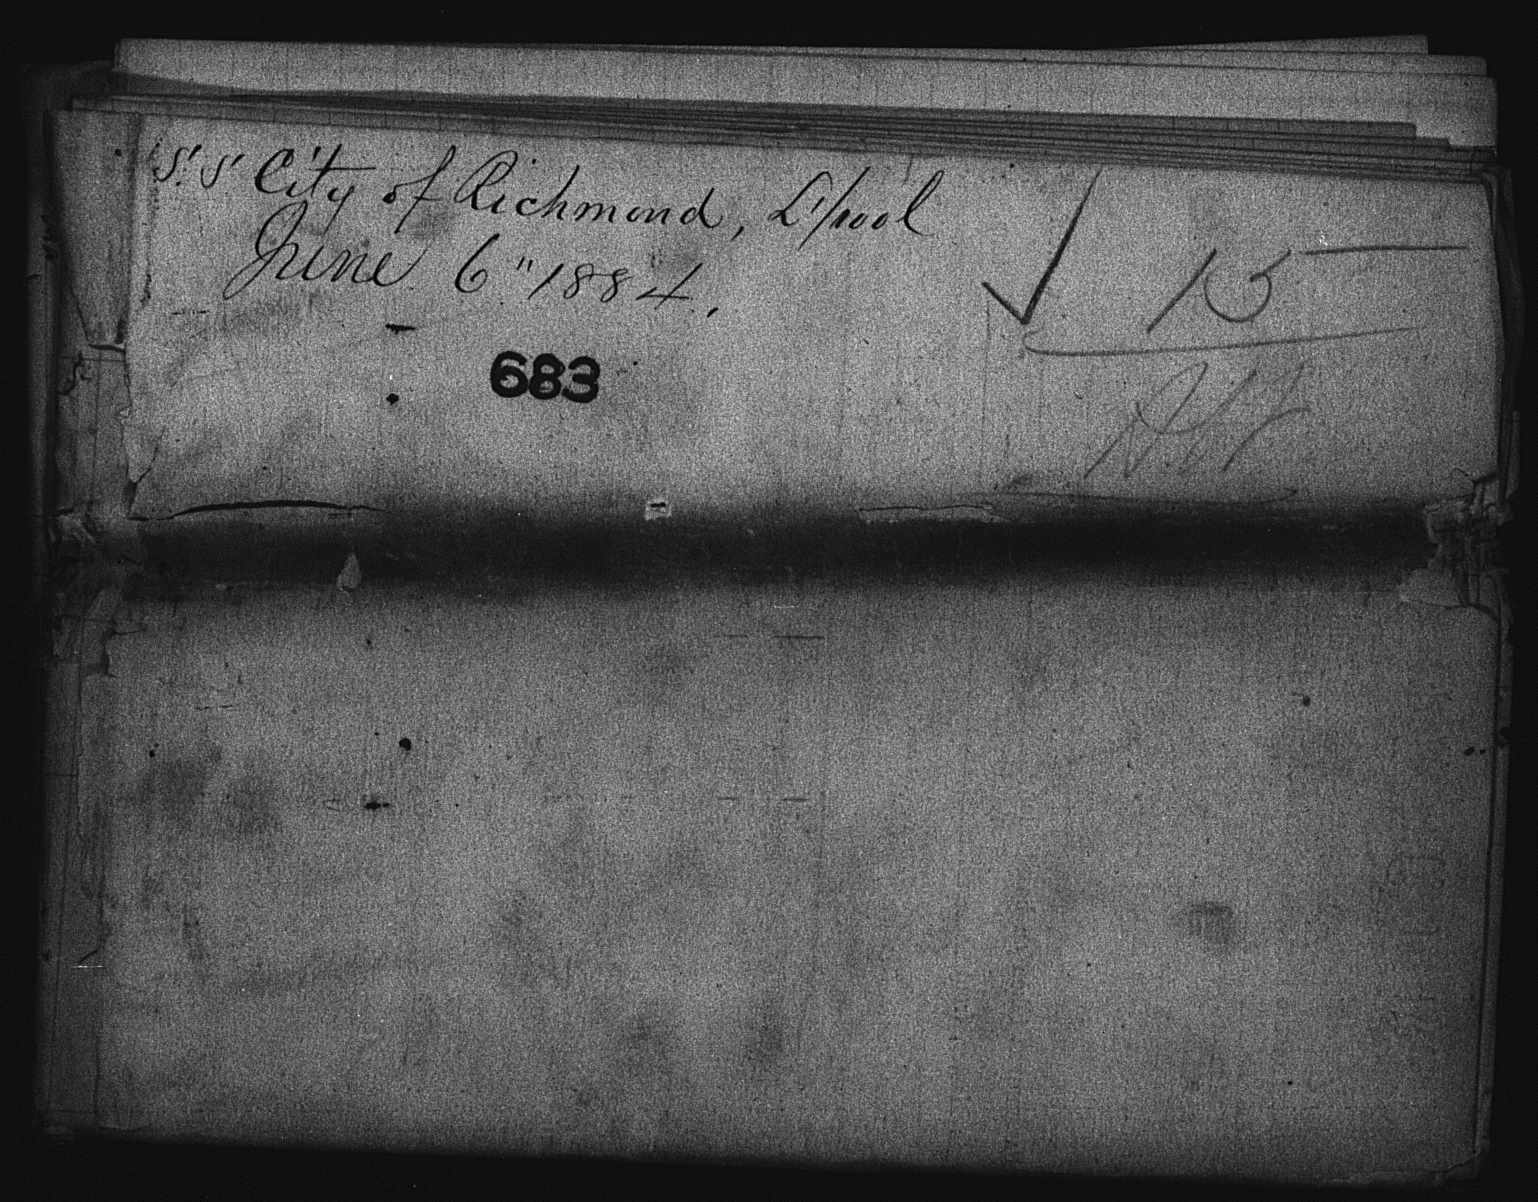 S.S. City of Richmond, L'pool
June 6" 1884.
683
15